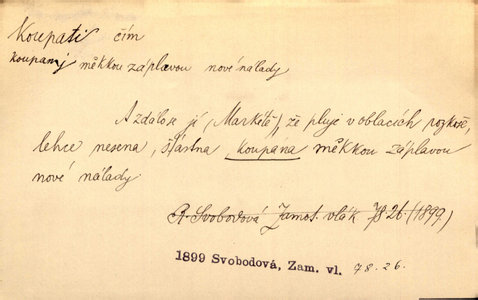 Koupati čím
koupaný měkkou záplavou nové nálady
A zdálo se jí (Markétě), že pluje v oblacích rozkoše,
lehce nesena, šťastna koupána měkkou záplavou
nové nálady
R. Svobodová Zamot. vlák 78.26. (1899)
1899 Svobodová, Zam. vl. 78.26.